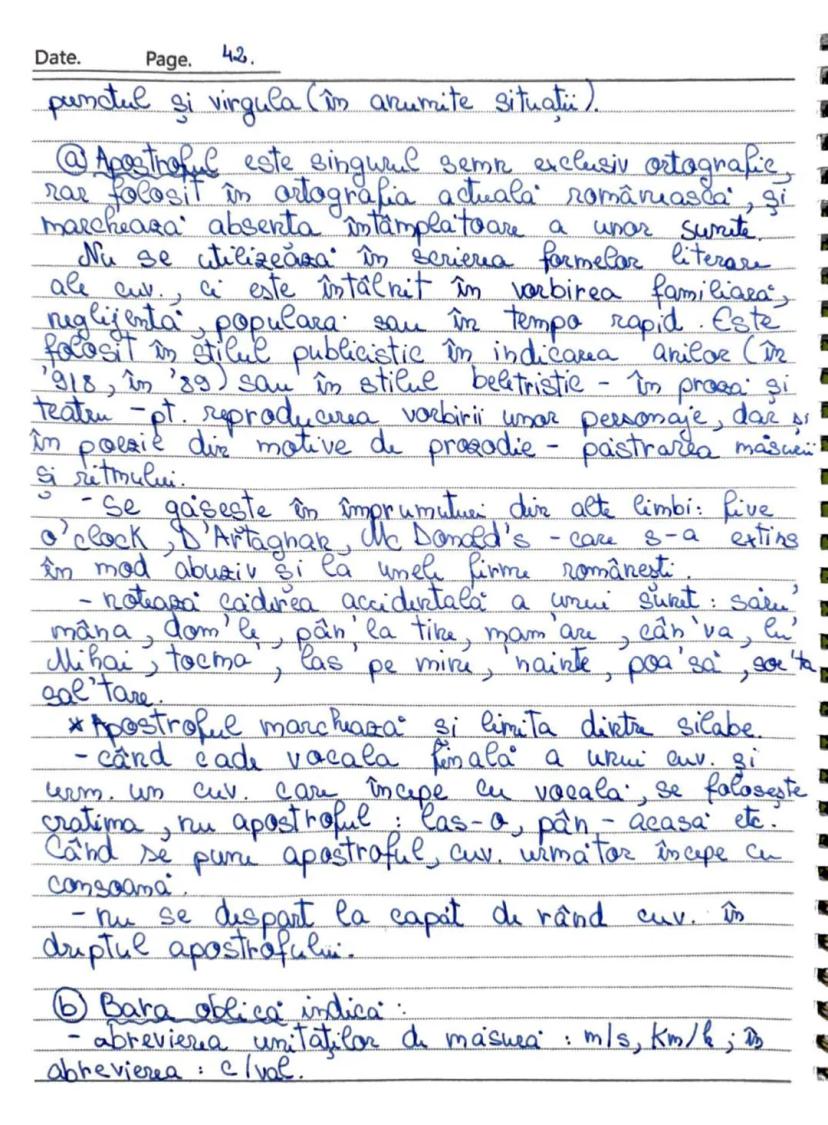 Date. Page. 42.
punctul și virgula (în anumite situații).
ⓐ Apostroful este singurul semn exclusiv ortografic,
rar folosit în ortografia actuală românească, și
marchează absența întâmplătoare a unor sunete.
Nu se utilizează în scrierea formelor literare
ale cuv., ci este întâlnit în vorbirea familiară,
neglijentă, populară sau în tempo rapid. Este
folosit în stilul publicistic în indicarea anilor (în
'918, în '89) sau în stilul beletristic - în proză și
teatru - pt. reproducerea vorbirii unor personaje, dar și
în poezie din motive de prozodie - păstrarea măsurii
și ritmului.
- se găsește în împrumuturi din alte limbi: five
o'clock, D'Artagnan, Mc Donald's - care s-a extins
în mod abuziv și la unele firme românești.
- notează căderea accidentală a unui sunet: săru'
mâna, dom'le, pân'la tine, mam'are, cân'va, lu'
Mihai, tocma', las' pe mine, 'nainte, poa'să,
sal'tare.
* Apostroful marchează și limita dintre silabe.
- când cade vocala finală a unui cuv. și
urm. un cuv. care începe cu vocală, se folosește
cratima, nu apostroful: las-o, pân-acasă etc.
Când se pune apostroful, cuv. următor începe cu
consoană.
- nu se despart la capăt de rând cuv. în
dreptul apostrofului.
ⓑ Bara oblică indică:
- abrevierea unităților de măsură: m/s, km/h; în
abrevierea: c/val.